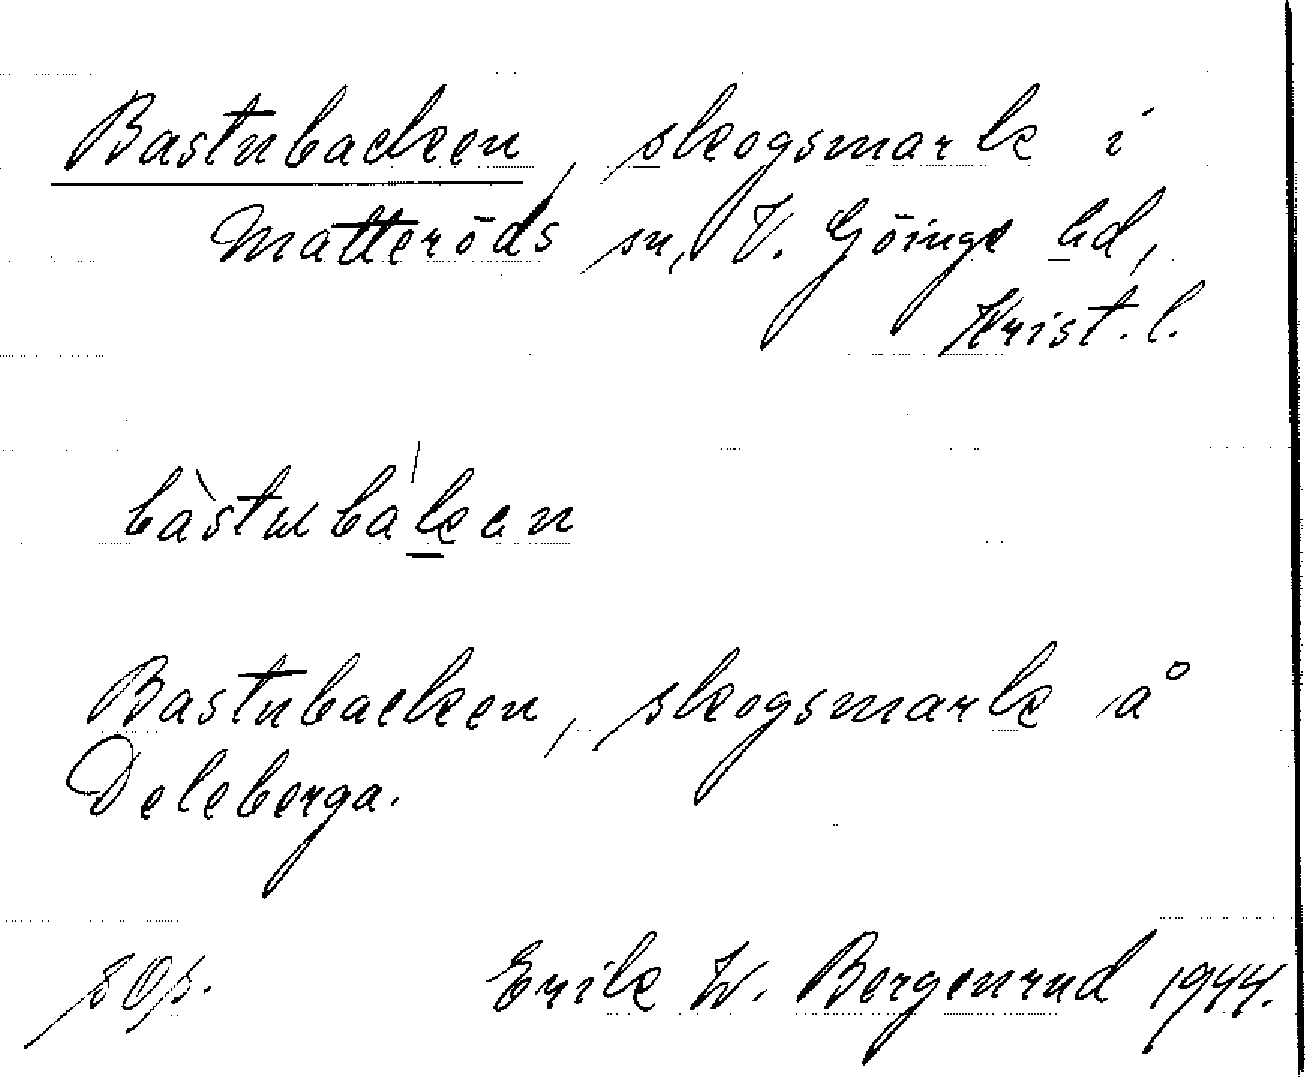 Bastubacken, skogsmark i
Matteröds sn, V. Göinge hd,
Krist. l.
bàstubák̲an
Bastubacken, skogsmark å
Deleberga.
Erik W. Bergenrud 1944.